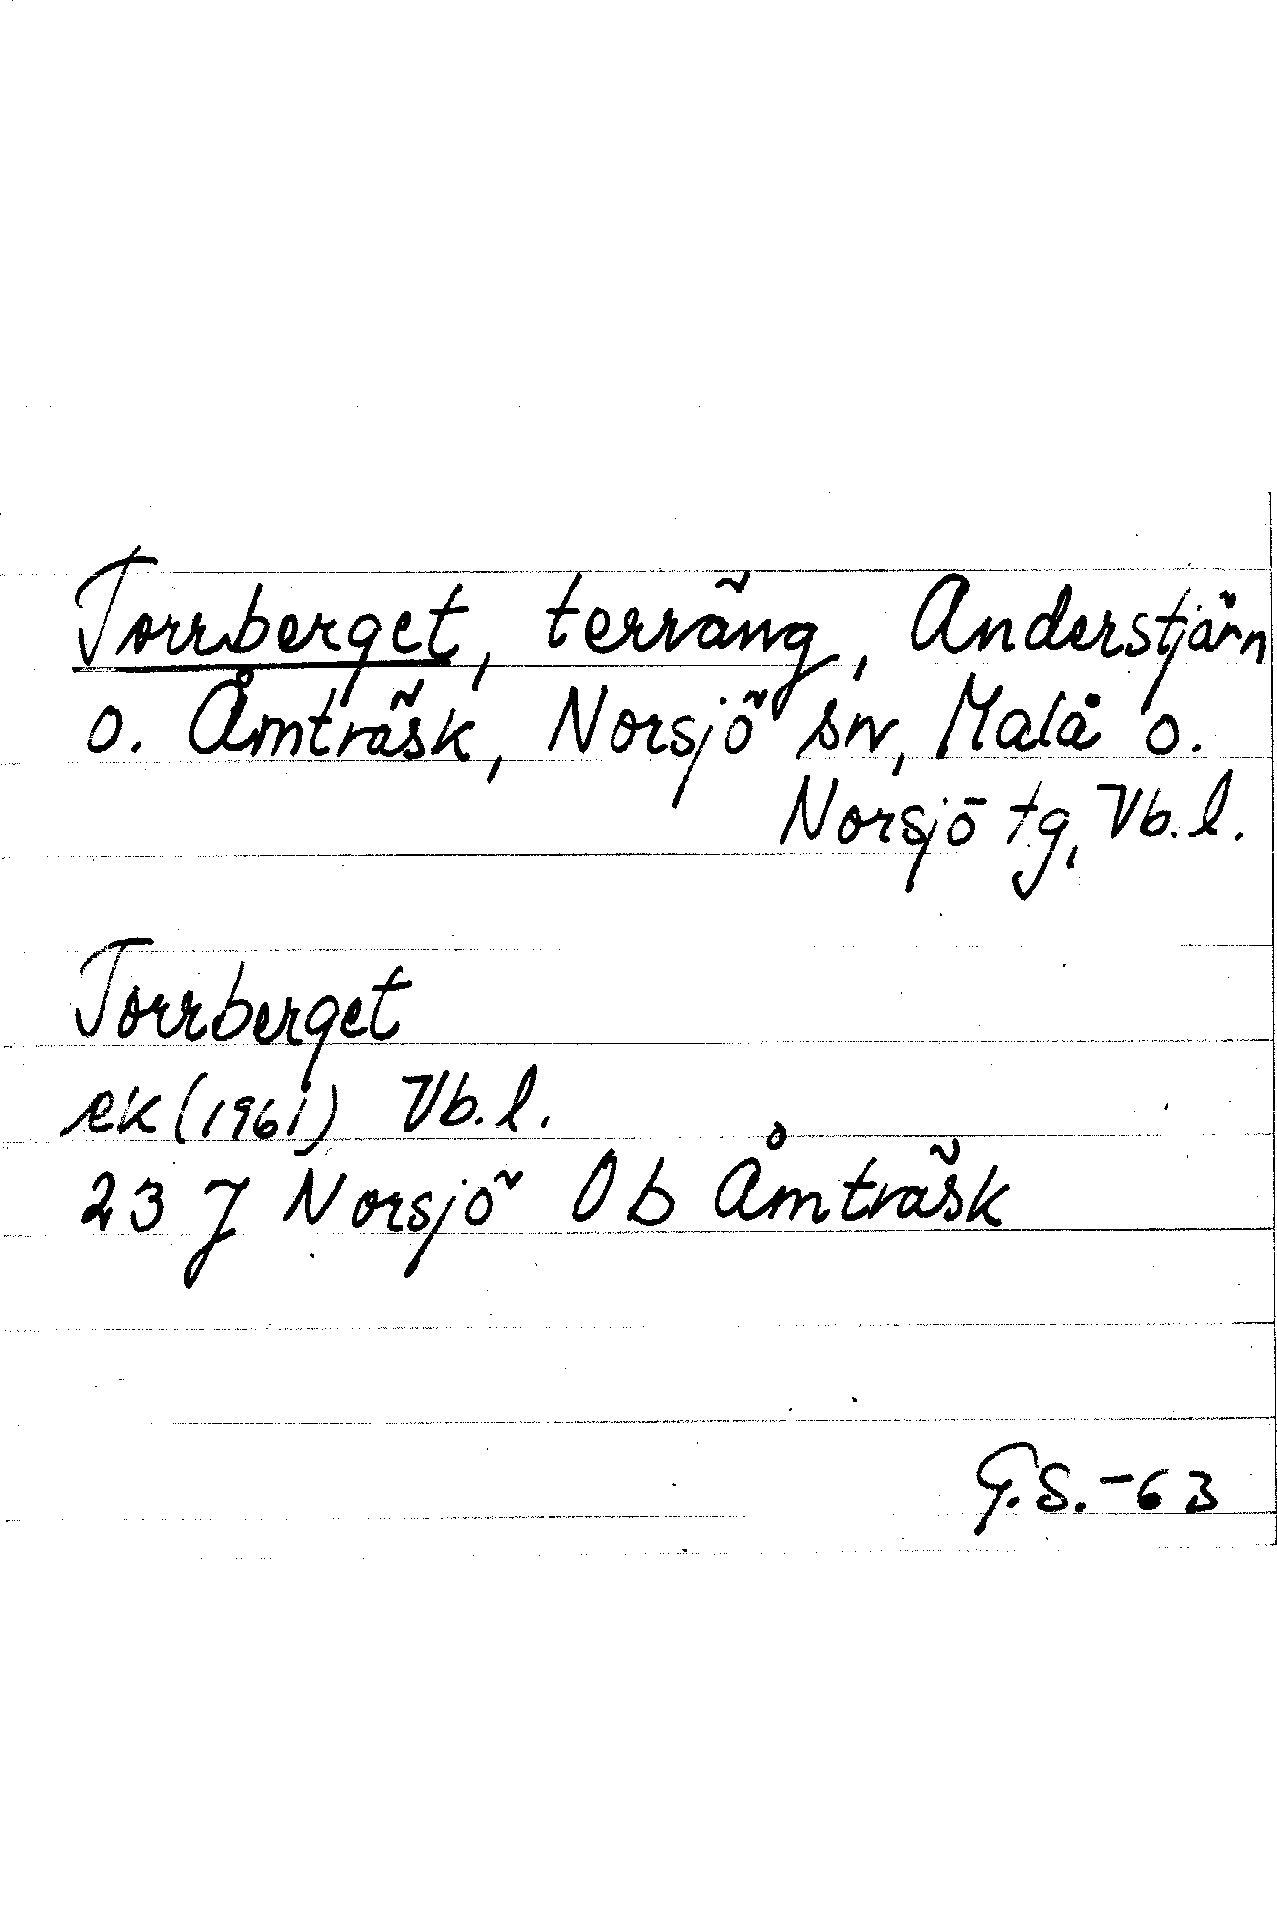 Torrberget, terräng, Anderstjärn
o. Åmträsk, Norsjö sn, Malå o.
Norsjö tg, Vb.l.
Torrberget
ek (1961) Vb.l.
23 J Norsjö 0b Åmträsk
G.S.-63